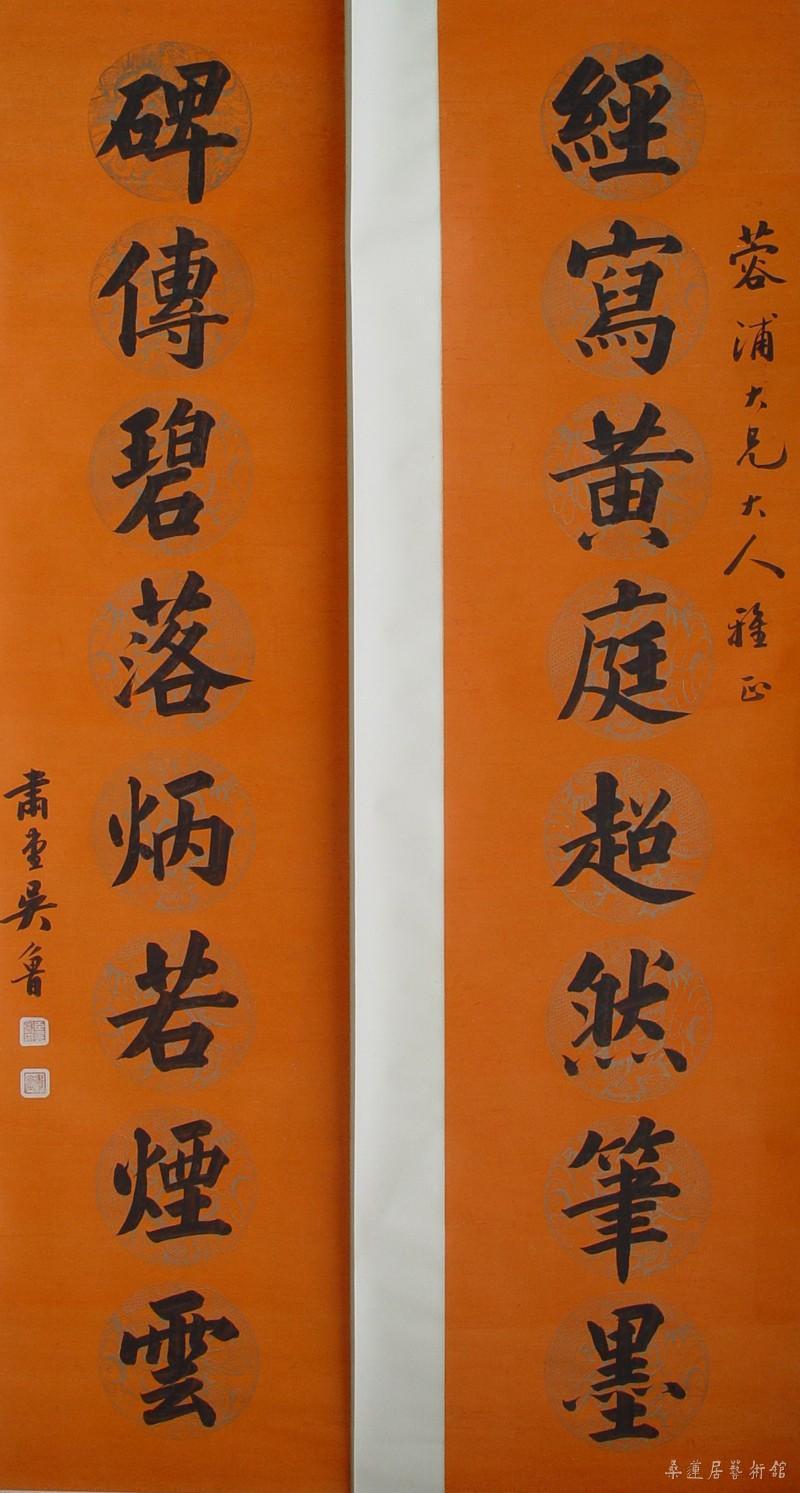 蓉浦大兄大人雅正
經寫黃庭超然筆墨
碑傳碧落炳若煙雲
肅堂吳魯
桑蓮居藝術館